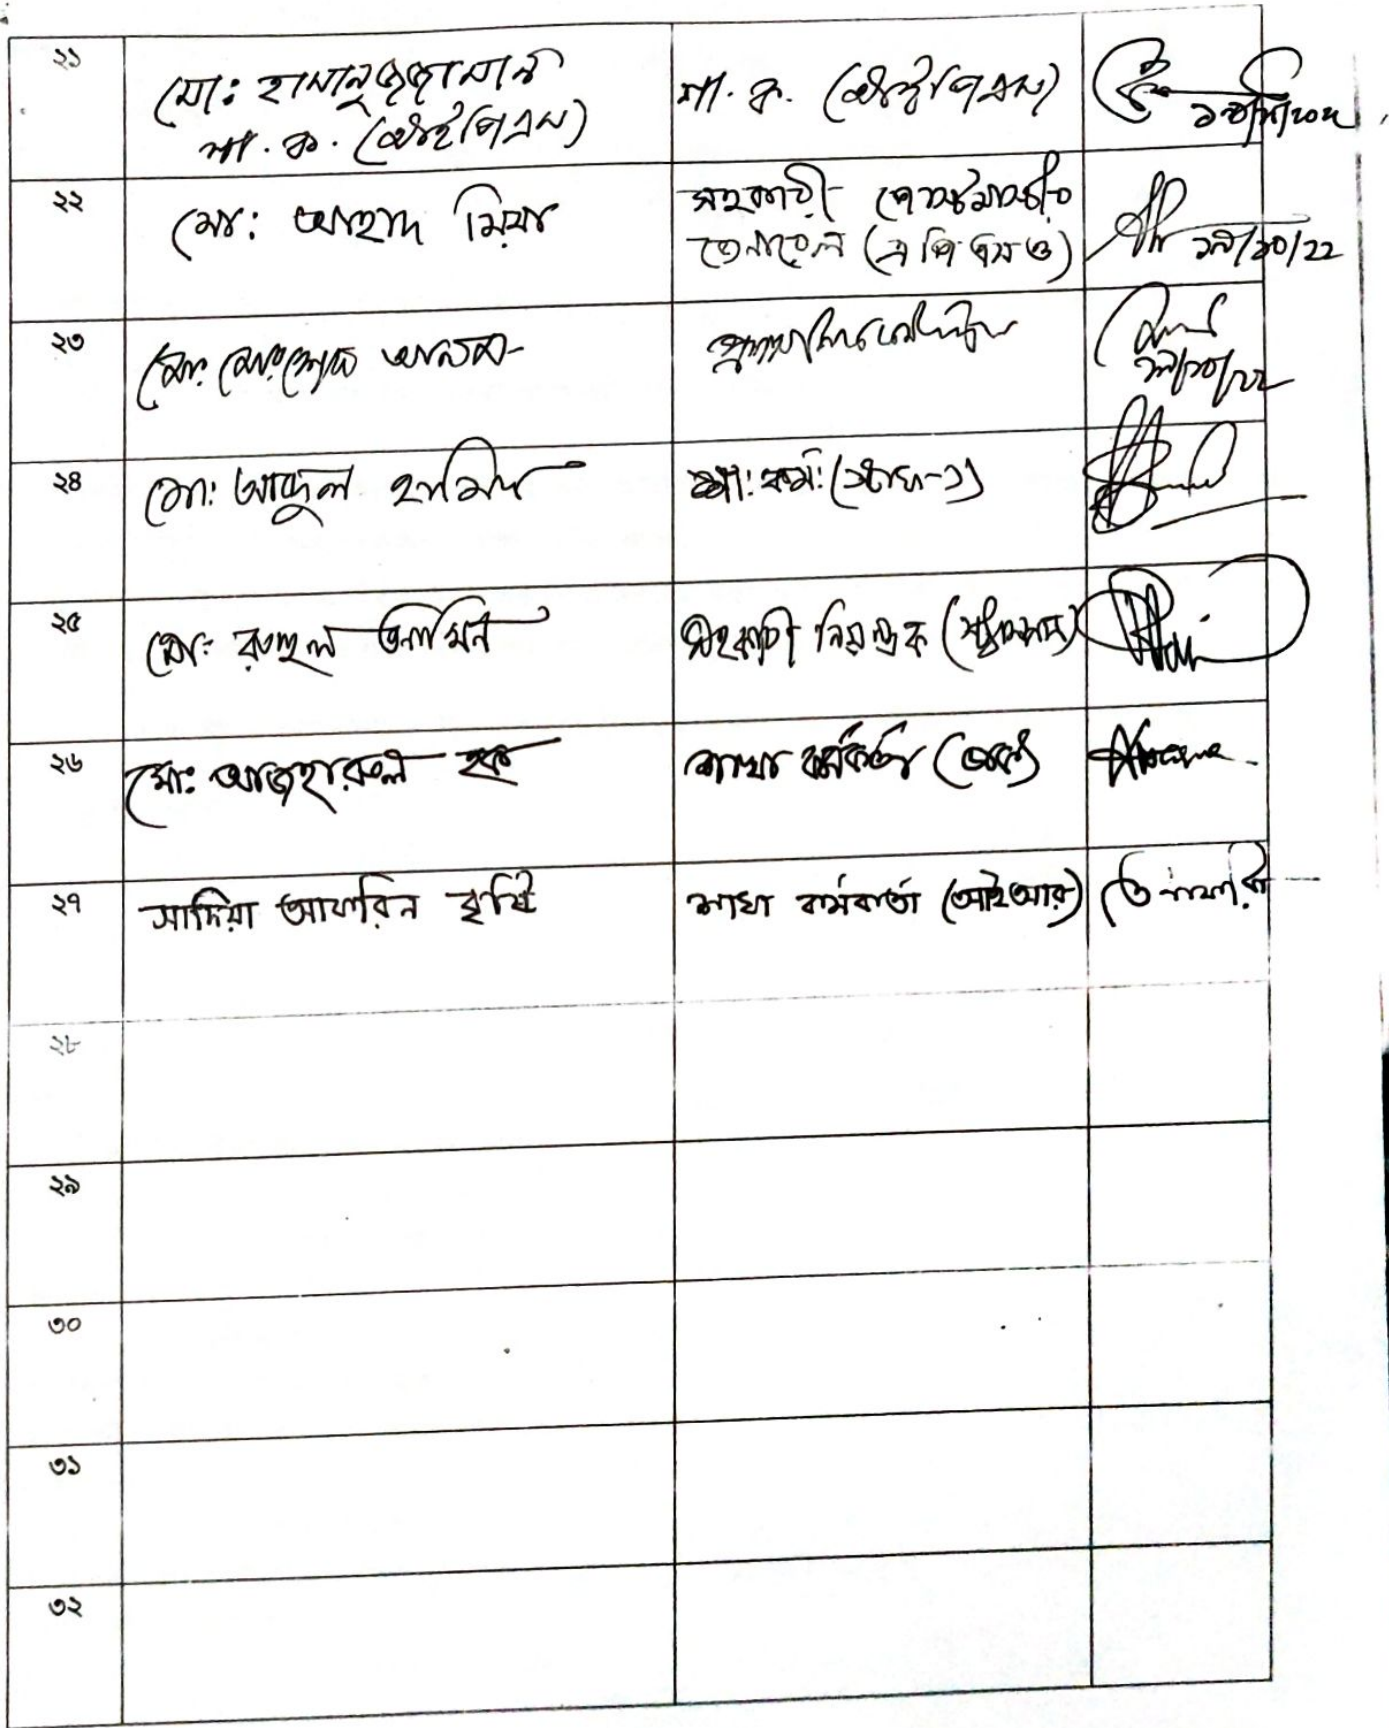 ২১ মো: হাসানুজ্জামান শা. ক. (আইপিএস)
শা. ক. (আইপিএস)
২২ মো: আহাদ মিয়া সহকারী পোস্টমাস্টার
জেনারেল (এপিএমও) ১৯/১০/২২
২৩ মো: আলম
১৯/১০/২২
২৪ মো: আব্দুল হামিদ শা: কর্ম: (স্টাফ-১)
২৫ মো: রুহুল আমিন সহকারী নিয়ন্ত্রক
২৬ মো: আজহারুল হক শাখা কর্মকর্তা (ডাক)
২৭ সাদিয়া আফরিন বৃষ্টি শাখা কর্মকর্তা (আইআর)
২৮
২৯
৩০
৩১
৩২